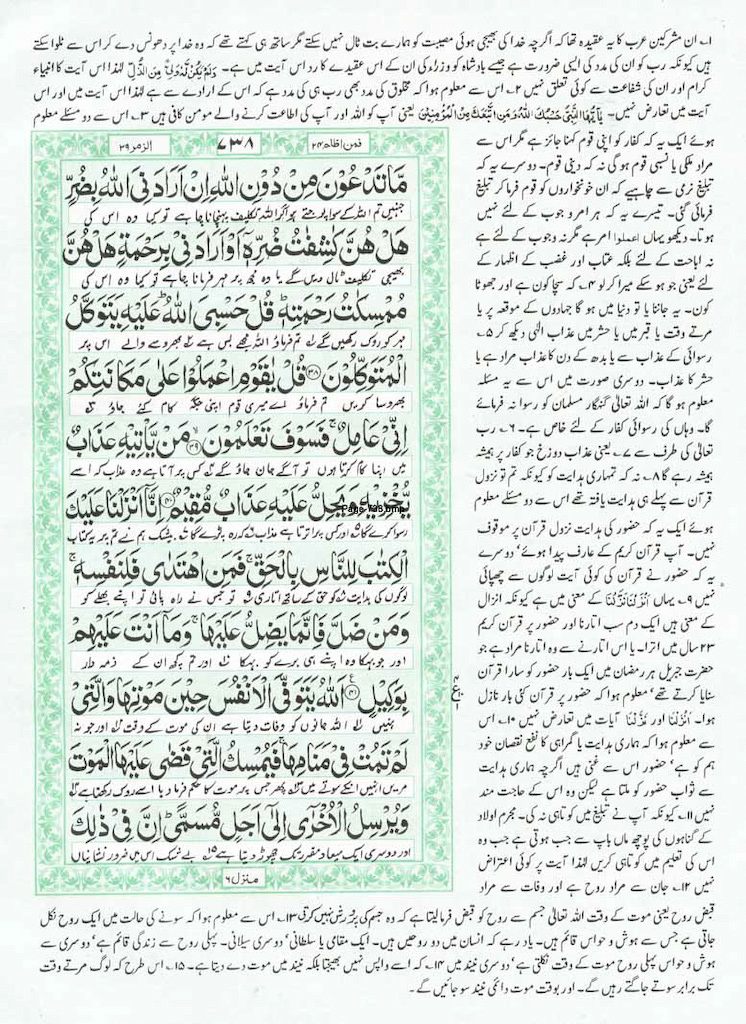 ۱۔ ان مشرکین عرب کا یہ عقیدہ تھا کہ اگرچہ خدا کی بھیجی ہوئی مصیبت کو ہمارے بت ٹال نہیں سکتے مگر ساتھ ہی کہتے تھے کہ وہ خدا پر دھونس دے کر اس سے ٹلوا سکتے
ہیں کیونکہ رب کو ان کی مدد کی ایسی ضرورت ہے جیسے بادشاہ کو وزراء کی ان کے اس عقیدے کا رد اس آیت میں ہے۔ وَلَمْ یَکُنْ لَّہٗ وَلِیٌّ مِّنَ الذُّلِّ لہٰذا اس آیت کا انبیاء
کرام اور ان کی شفاعت سے کوئی تعلق نہیں ۲۔ معلوم ہوا کہ مخلوق کی مدد بھی رب ہی کی مدد ہے کہ اس کے ارادے سے ہے لہٰذا اس آیت میں اور اس
آیت میں تعارض نہیں۔ یٰٓاَیُّھَا النَّبِیُّ حَسْبُکَ اللّٰہُ وَمَنِ اتَّبَعَکَ مِنَ الْمُؤْمِنِیْنَ یعنی آپ کو اللہ اور آپ کی اطاعت کرنے والے مومن کافی ہیں ۳۔ اس سے دو مسئلے معلوم
ہوئے ایک یہ کہ کفار کو اپنی قوم کہنا جائز ہے مگر اس سے
مراد ملکی یا نسبی قوم ہو گی نہ کہ دینی قوم۔ دوسرے یہ کہ
تبلیغ نرمی سے چاہیے کہ ان خونخواروں کو قوم فرما کر تبلیغ
فرمائی گئی۔ تیسرے یہ کہ ہر امر وجوب کے لئے نہیں
ہوتا۔ دیکھو یہاں اعملوا امر ہے مگر نہ وجوب کے لئے ہے
نہ اباحت کے لئے بلکہ عتاب اور غضب کے اظہار کے
لئے یعنی جو ہو سکے میرا کر لو ۴۔ کہ سچا کون ہے اور جھوٹا
کون۔ یہ جاننا یا تو دنیا میں ہو گا جہادوں کے موقعہ پر یا
مرتے وقت یا قبر میں یا حشر میں عذاب الٰہی دیکھ کر ۵۔
رسوائی کے عذاب سے یا بدھ کے دن کا عذاب مراد ہے یا
حشر کا عذاب۔ دوسری صورت میں اس سے یہ مسئلہ
معلوم ہو گا کہ اللہ تعالیٰ گنہگار مسلمان کو رسوا نہ فرمائے
گا۔ وہاں کی رسوائی کفار کے لئے خاص ہے۔ ۶۔ رب
تعالیٰ کی طرف سے ۷۔ یعنی عذاب دوزخ جو کفار پر ہمیشہ
ہمیشہ رہے گا ۸۔ نہ کہ تمہاری ہدایت کو کیونکہ تم تو نزول
قرآن سے پہلے ہی ہدایت یافتہ تھے اس سے دو مسئلے معلوم
ہوئے ایک یہ کہ حضور کی ہدایت نزول قرآن پر موقوف
نہیں۔ آپ قرآن کریم کے عارف پیدا ہوئے‘ دوسرے
یہ کہ حضور نے قرآن کی کوئی آیت لوگوں سے چھپائی
نہیں ۹۔ یہاں اَنْزَلْنَا نَزَّلْنَا کے معنی میں ہے کیونکہ انزال
کے معنی ہیں ایک دم سب اتارنا اور حضور پر قرآن کریم
۲۳ سال میں اترا۔ یا اس اتارنے سے وہ اتارنا مراد ہے جو
حضرت جبریل ہر رمضان میں ایک بار حضور کو سارا قرآن
سنایا کرتے تھے‘ معلوم ہوا کہ حضور پر قرآن کئی بار نازل
ہوا۔ اَنْزَلْنَا اور نَزَّلْنَا آیات میں تعارض نہیں ۱۰۔ اس
سے معلوم ہوا کہ ہماری ہدایت یا گمراہی کا نفع نقصان خود
ہم کو ہے‘ حضور اس سے غنی ہیں اگرچہ ہماری ہدایت
سے ثواب حضور کو ملتا ہے لیکن وہ اس کے حاجت مند
نہیں ۱۱۔ کیونکہ آپ نے تبلیغ میں کوتاہی نہ کی۔ مجرم اولاد
کے گناہوں کی پوچھ ماں باپ سے جب ہوتی ہے جب وہ
اس کی تعلیم میں کوتاہی کریں لہٰذا آیت پر کوئی اعتراض
نہیں ۱۲۔ جان سے مراد روح ہے اور وفات سے مراد
فمن اظلم ۲۴
۷۳۸
الزمر ۳۹
مَّا تَدْعُوْنَ مِنْ دُوْنِ اللّٰهِ اِنْ اَرَادَنِیَ اللّٰهُ بِضُرٍّ
جنہیں تم اللہ کے سوا پوجتے ہو اگر اللہ مجھے تکلیف پہنچانا چاہے تو کیا وہ اس کی
هَلْ هُنَّ كٰشِفٰتُ ضُرِّهٖۤ اَوْ اَرَادَنِیْ بِرَحْمَةٍ هَلْ هُنَّ
بھیجی تکلیف ٹال دیں گے یا وہ مجھ پر مہر فرمانا چاہے تو کیا وہ اس کی
مُمْسِكٰتُ رَحْمَتِهٖ ؕ قُلْ حَسْبِیَ اللّٰهُ ؕ عَلَیْهِ یَتَوَكَّلُ
مہر کو روک رکھیں گے تم فرماؤ اللہ مجھے بس ہے بھروسے والے اس پر
الْمُتَوَكِّلُوْنَ ۳۸ قُلْ یٰقَوْمِ اعْمَلُوْا عَلٰی مَكَانَتِكُمْ
بھروسا کریں تم فرماؤ اے میری قوم اپنی جگہ کام کئے جاؤ
اِنِّیْ عَامِلٌ ۚ فَسَوْفَ تَعْلَمُوْنَ ۳۹ مَنْ یَّاْتِیْهِ عَذَابٌ
میں اپنا کام کرتا ہوں تو آگے جان جاؤ گے کس پر آتا ہے وہ عذاب کہ اسے
یُّخْزِیْهِ وَیَحِلُّ عَلَیْهِ عَذَابٌ مُّقِیْمٌ ۴۰ اِنَّاۤ اَنْزَلْنَا عَلَیْكَ
Page 738.bmp
رسوا کرے گا اور کس پر اترتا ہے عذاب کہ رہ پڑے گا بیشک ہم نے تم پر یہ کتاب
الْكِتٰبَ لِلنَّاسِ بِالْحَقِّ ۚ فَمَنِ اهْتَدٰی فَلِنَفْسِهٖ ۚ
لوگوں کی ہدایت کو حق کے ساتھ اتاری تو جس نے راہ پائی تو اپنے بھلے کو
وَمَنْ ضَلَّ فَاِنَّمَا یَضِلُّ عَلَیْهَا ۚ وَمَاۤ اَنْتَ عَلَیْهِمْ
اور جو بہکا وہ اپنے ہی برے کو بہکا اور تم کچھ ان کے ذمہ دار
بِوَكِیْلٍ ۴۱ اَللّٰهُ یَتَوَفَّی الْاَنْفُسَ حِیْنَ مَوْتِهَا وَالَّتِیْ
نہیں اللہ جانوں کو وفات دیتا ہے ان کی موت کے وقت اور جو نہ
لَمْ تَمُتْ فِیْ مَنَامِهَا ۚ فَیُمْسِكُ الَّتِیْ قَضٰی عَلَیْهَا الْمَوْتَ
مریں انہیں انکے سوتے میں پھر جس پر موت کا حکم فرما دیا اسے روک رکھتا ہے
وَیُرْسِلُ الْاُخْرٰۤی اِلٰۤی اَجَلٍ مُّسَمًّی ؕ اِنَّ فِیْ ذٰلِكَ
اور دوسری ایک میعاد مقرر تک چھوڑ دیتا ہے بے شک اس میں ضرور نشانیاں
منزل ۶
قبض روح یعنی موت کے وقت اللہ تعالیٰ جسم سے روح کو قبض فرما لیتا ہے کہ وہ جسم کی پرورش نہیں کرتی ۱۳۔ اس سے معلوم ہوا کہ سونے کی حالت میں ایک روح نکل
جاتی ہے جس سے ہوش و حواس قائم ہیں۔ یاد رہے کہ انسان میں دو روحیں ہیں۔ ایک مقامی یا سلطانی‘ دوسری سیلانی۔ پہلی روح سے زندگی قائم ہے‘ دوسری سے
ہوش و حواس پہلی روح موت کے وقت نکلتی ہے‘ دوسری نیند میں ۱۴۔ کہ اسے واپس نہیں بھیجتا بلکہ نیند میں موت دے دیتا ہے۔ ۱۵۔ اس طرح کہ لوگ مرتے وقت
تک برابر سوتے جاگتے رہیں گے۔ اور بوقت موت دائمی نیند سو جائیں گے۔